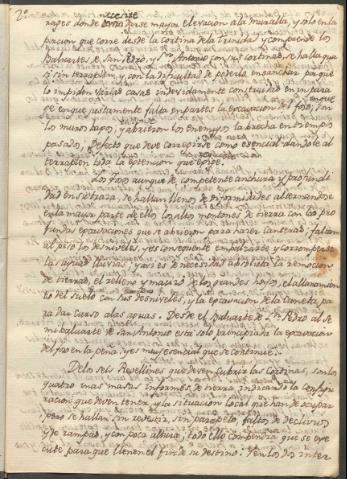 necesite
rages donde deva darse mayor elevacion a la muralla, y solo en la
porcion que corre desde la cortina de la Trinidad y comprende los
Baluartes de San Pedro y Sn. Antonio con sus cortinas, se halla que
si sin terraplen, y con la dificultad de poderla ensanchar pr. que
lo impiden varias casas indevidamente construidas en
se en que justamente falta en partes la excavacion del foso, son
los muros bajos, y abrieron los Enemigos la brecha en tiempos
pasados, defecto que deve corregirse como esencial dandole al
terraplen toda la extension que exige.
Los fosos aunque de competente anchura y profundi
dad en se hallan llenos de disformidades alternandose
en la mayor parte de ellos los altos montones de tierra con las pro
fundas excavaciones que se abrieron para hacer canteras; faltan
al piso los desniveles, y es consiguiente empantanarse y corromperse
las aguas llubias, y así es de necesidad absoluta la remocion
de tierras, el relleno y macizo de los grandes hoyos, el allanamien
to del suelo con sus desniveles, y la excavacion de la cuneta pa
ra dar curso a las aguas. Desde el baluarte de Sn. Pedro al se
mibaluarte de San Antonio está solo principiada la excavacion
del foso en la peña, y es muy esencial que se continue.
De los seis Revellines que deven cubrir las Cortinas, son los
quatro unas masas informes de tierra, indicando la configu
racion que deven tener y la situacion local que han de ocupar;
pero se hallan sin revestir, sin parapeto, faltos de declivios
y de rampas, y con poca altura, todo ello comprendia que se exe
cute para que llenen el fin de su destino. En los dos inter